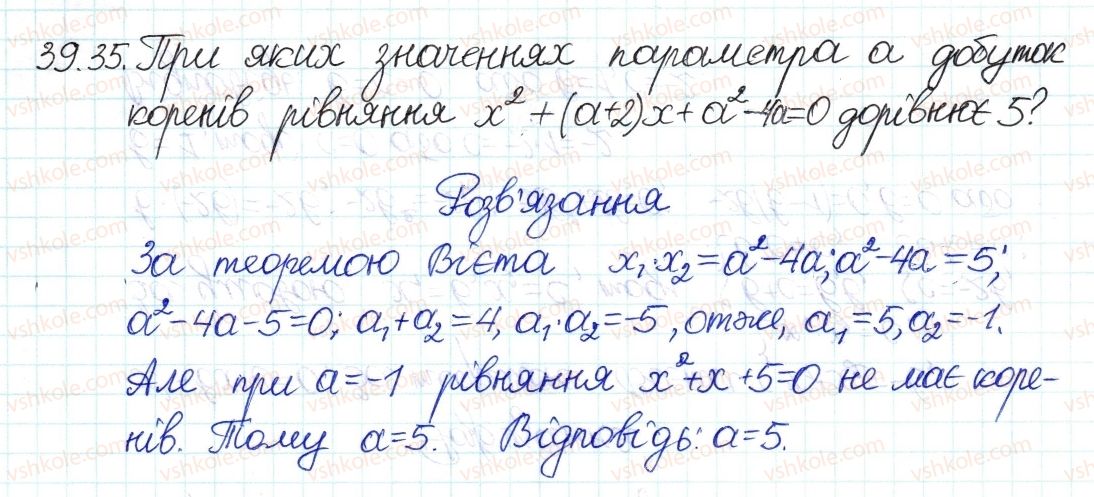 39.35. При яких значеннях параметра a добуток
коренів рівняння x² + (a+2)x + a² - 4a = 0 дорівнює 5?
Розв'язання
За теоремою Вієта x₁·x₂ = a² - 4a; a² - 4a = 5;
a² - 4a - 5 = 0; a₁ + a₂ = 4, a₁·a₂ = -5, отже, a₁ = 5, a₂ = -1.
Але при a = -1 рівняння x² + x + 5 = 0 не має коре-
нів. Тому a = 5. Відповідь: a = 5.